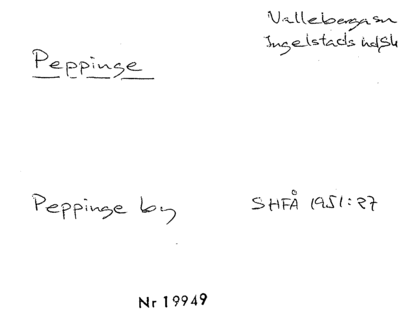 Vallebergasn
Ingelstads hd, Sk
Peppinge
Peppinge by SHFÅ 1951:27
Nr 19949